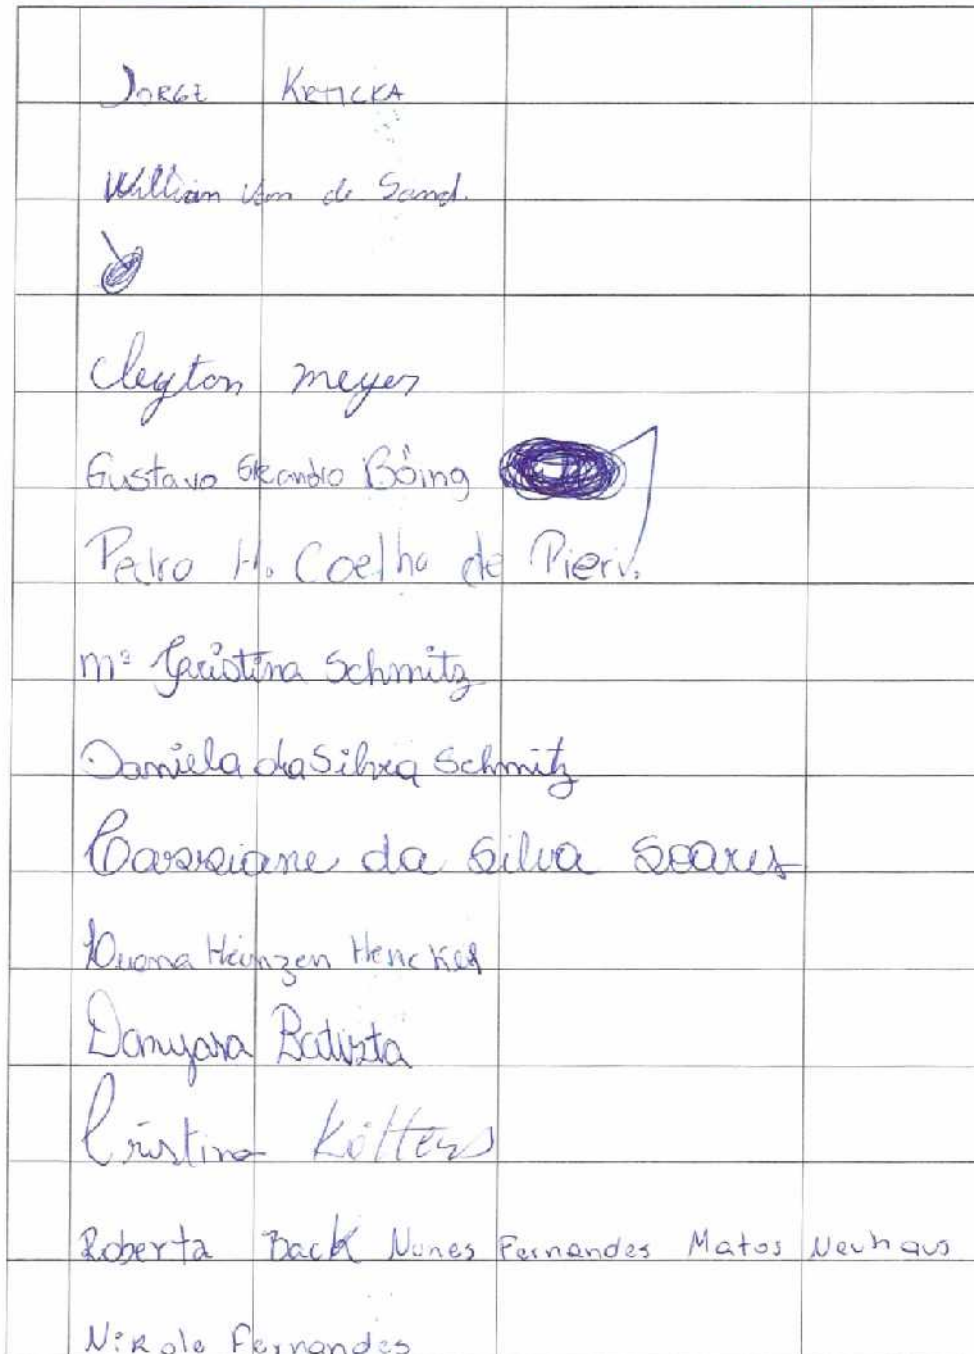 JORGE KRTICKA
Willian Van de Sand.
Cleyton meyer
Gustavo Bôing
Pedro H. Coelho de Pieri.
Mª Cristina Schmitz
Daniela da Silva Schmitz
Cassiane da Silva Soares
Luana Heinzen Henckel
Danyara Batista
Cristina Kötters
Roberta Back Nunes Fernandes Matos Neuhaus
Nikole Fernandes